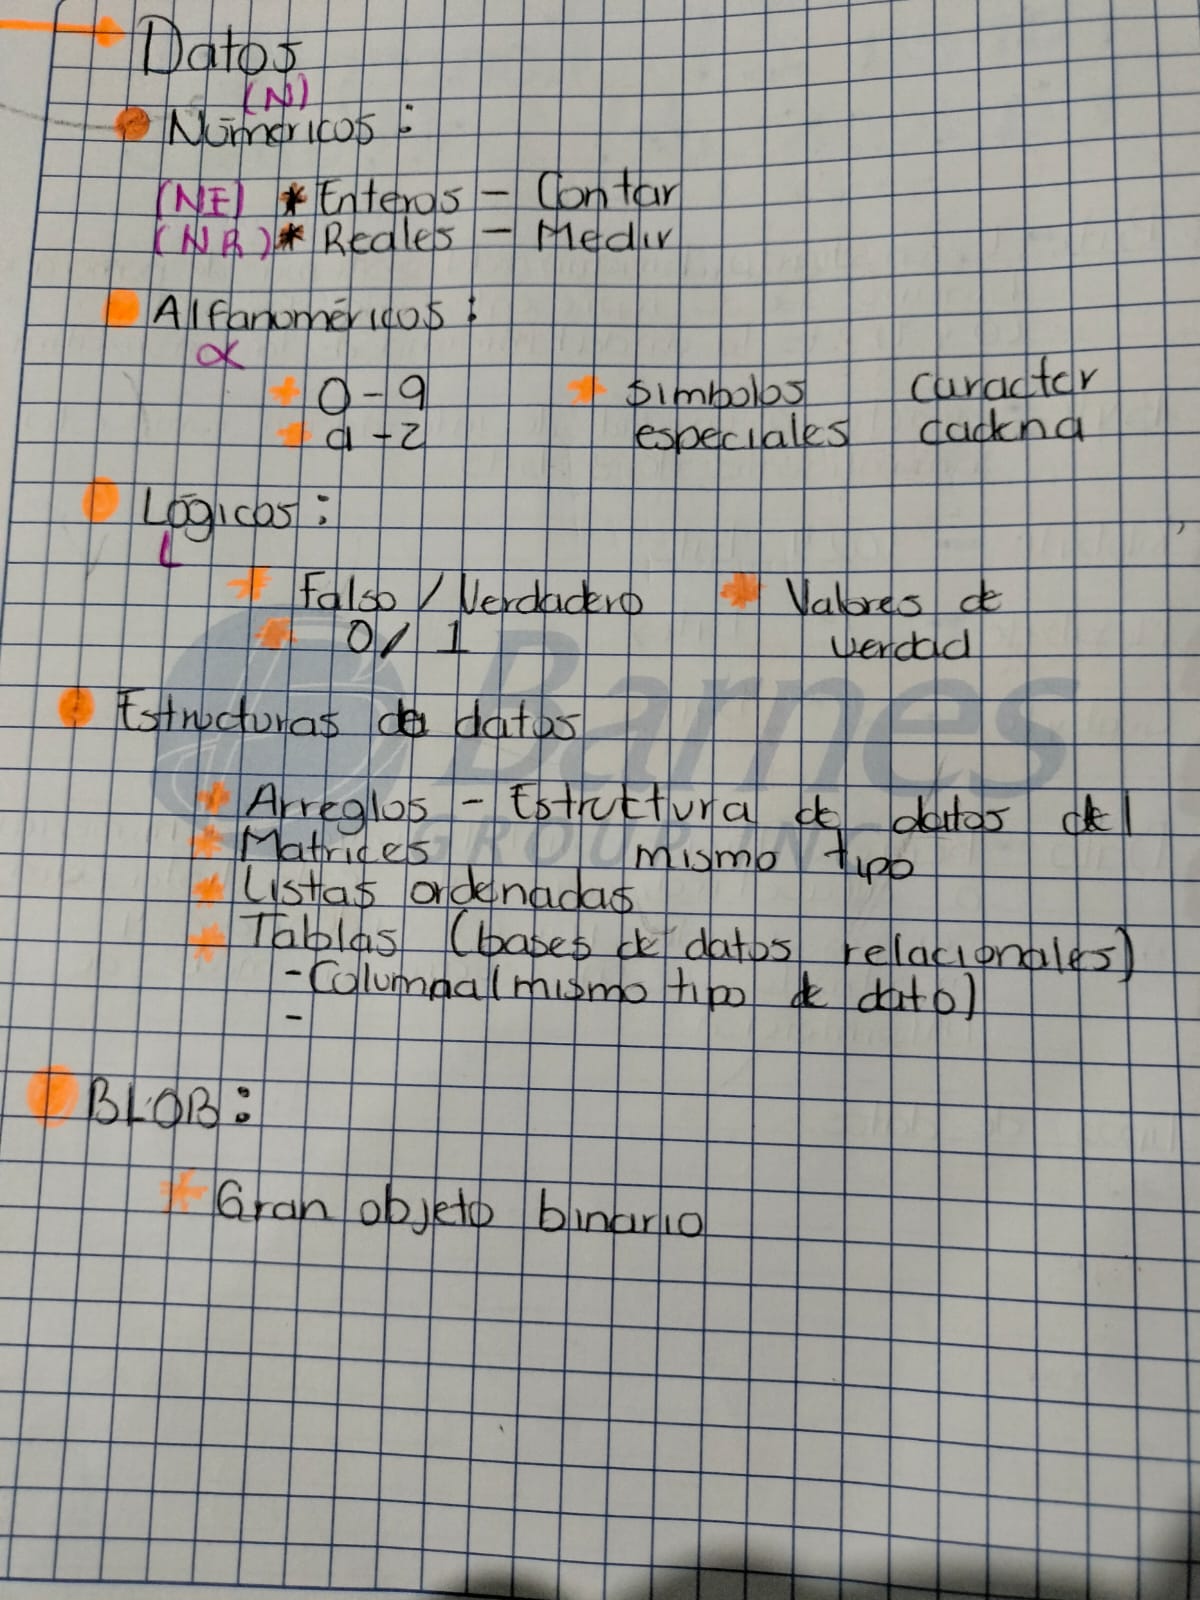 Datos
(N)
Númericos :
(NE) * Enteros - Contar
(NR) * Reales - Medir
Alfanoméricos :
α
0-9
a-z
simbolos
especiales
caracter
cadena
Lógicos :
L
Falso / Verdadero
0/ 1
Valores de
verdad
Estructuras de datos
Arreglos - Estructura de datos del
mismo tipo
Matrices
Listas ordenadas
Tablas (bases de datos relacionales)
-Columna (mismo tipo de dato)
-
BLOB :
Gran objeto binario
Barnes
GROUP INC